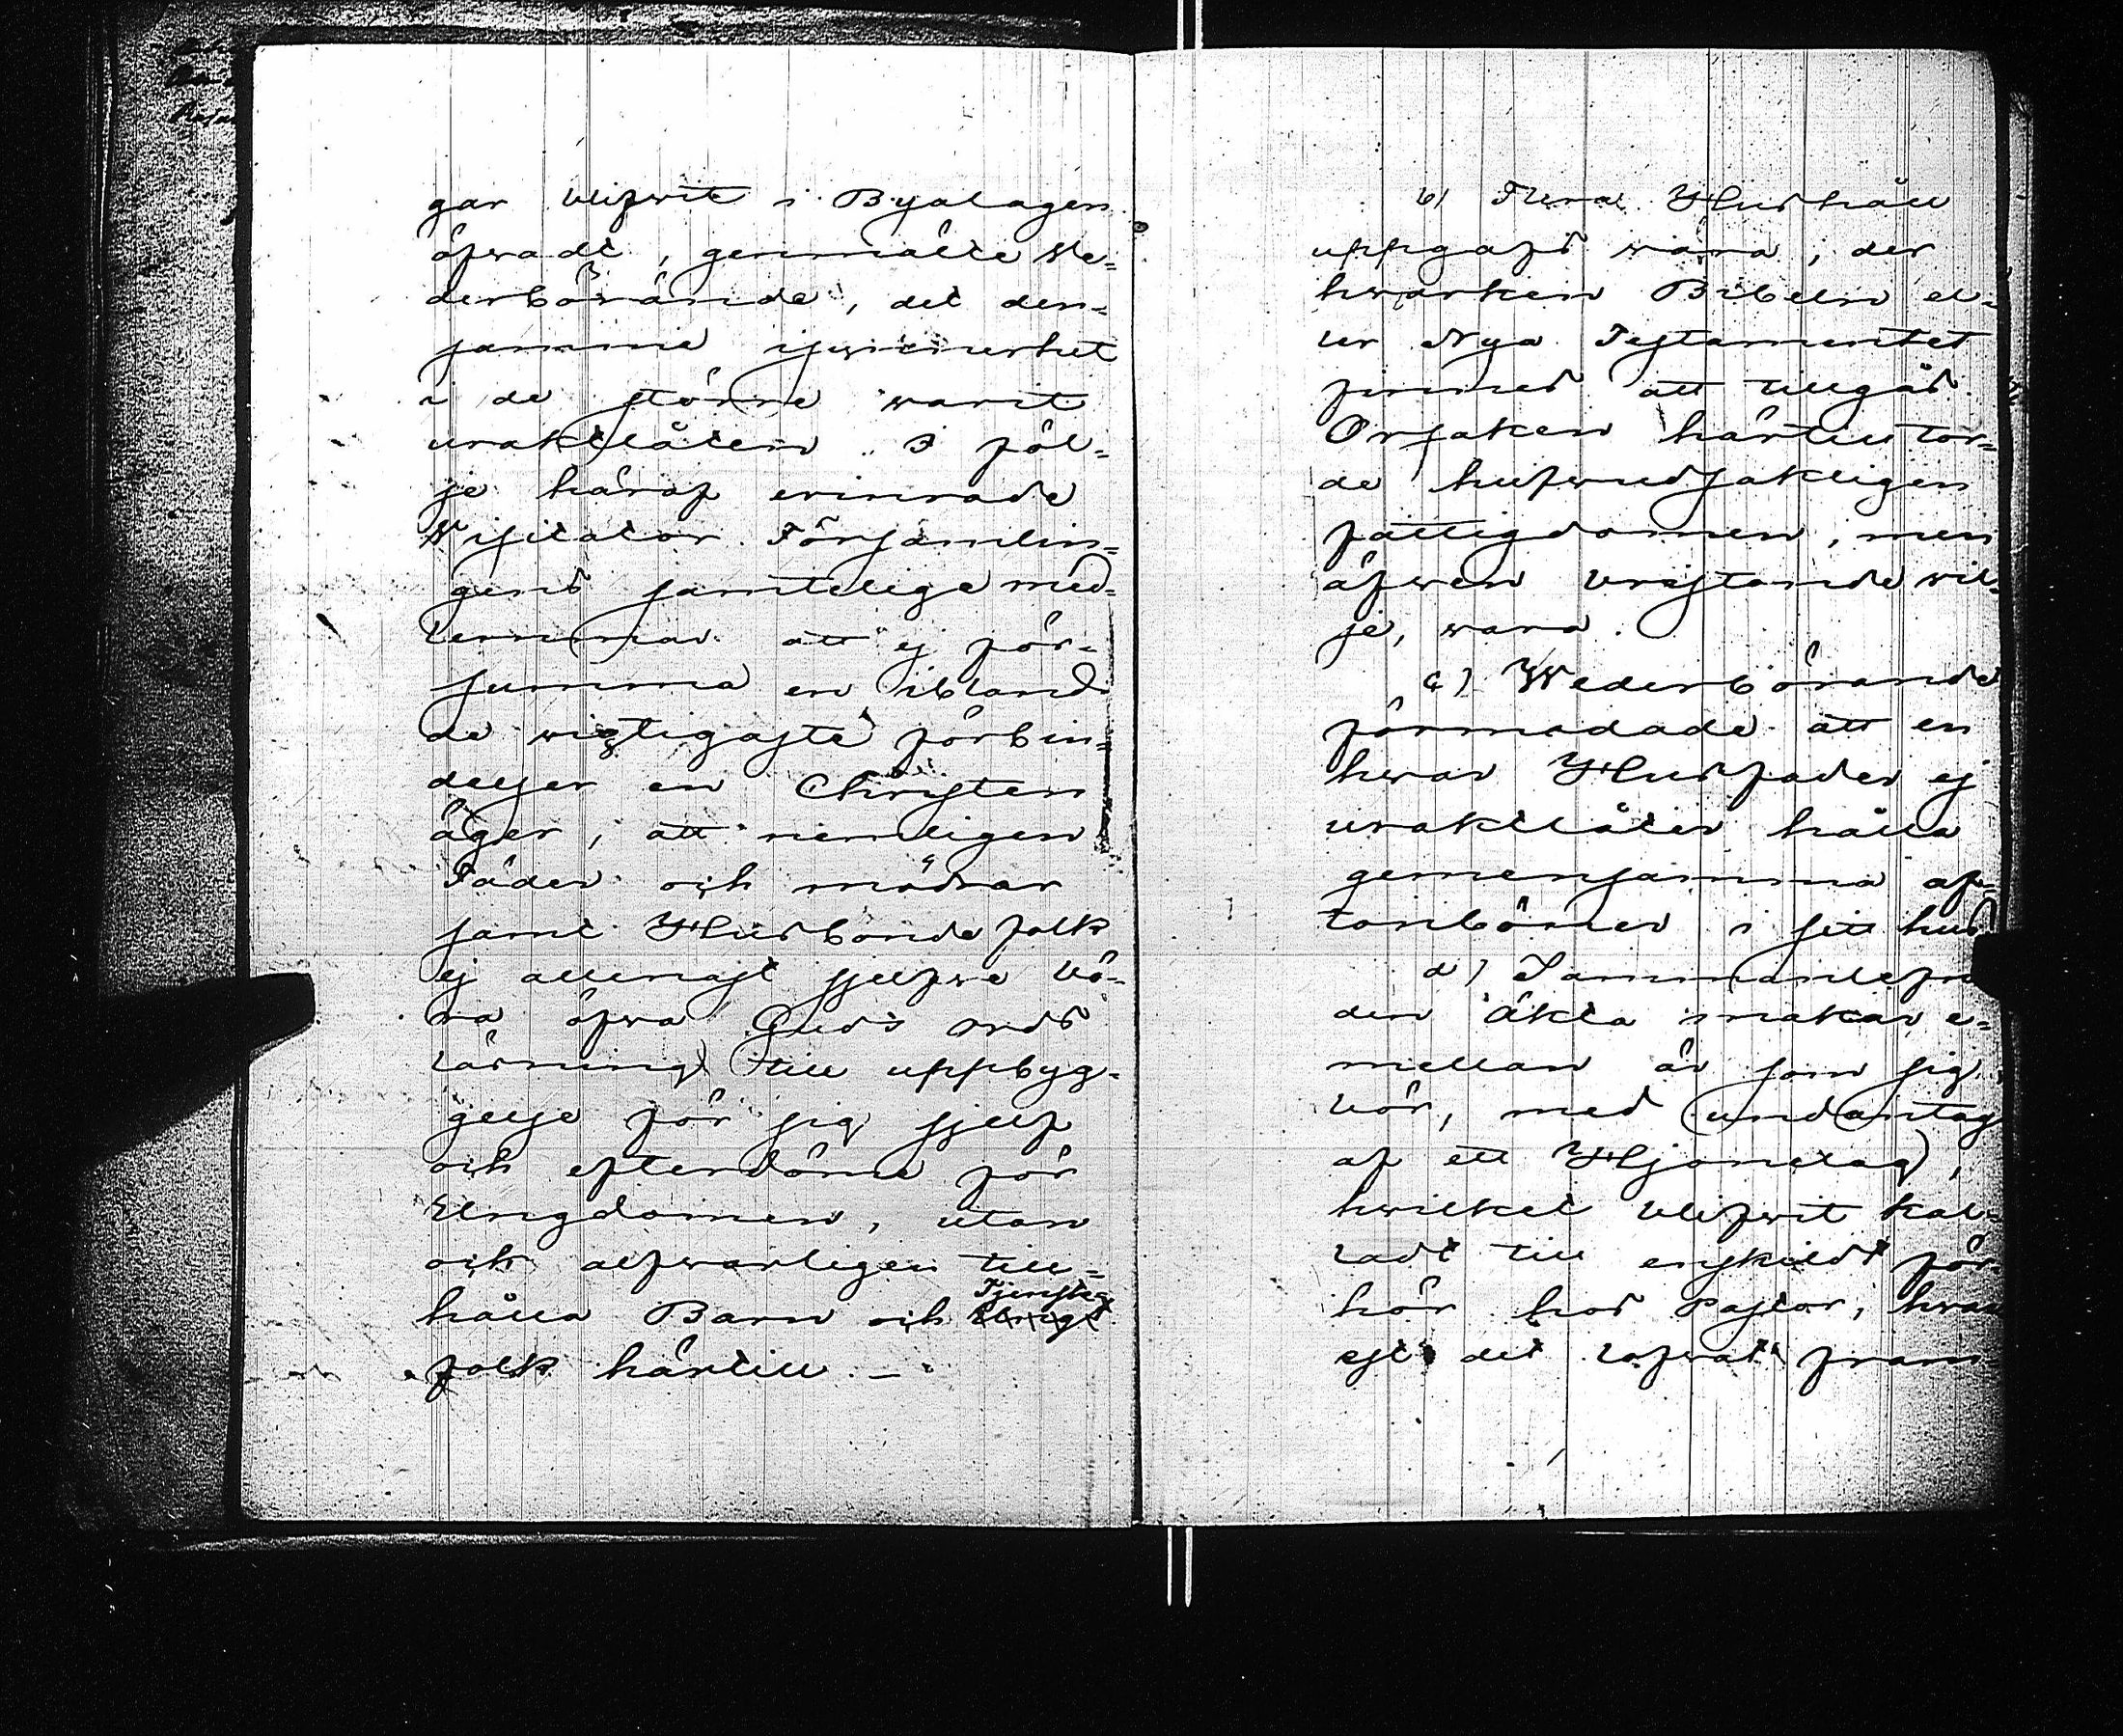 gar blifwit i Byalagen
öfwadt, genmälte We-
derbörande, det den-
samma isynnerhet
i de större warit
uraktlåten. I föl-
je häraf erinrade
Wisitator Församlin-
gens samtelige med-
lemmar att ej för-
summa en ibland
de wigtigaste förbin-
delser en Christen
äger, att nemligen
Fäder och mödrar
samt Husbondefolk
ej allenast sjelfwe bö-
ra öfwa Guds ords
läsning till uppbyg-
gelse för sig sjelf
och efterdöme för
Ungdomen, utan
och alfwarligen till-
hålla Barn och Tjenste-
folk härtill. —
b) Flera Hushåll
uppgafs wara, der
hwarken Bibeln el-
ler Nya Testamentet
finnes att tillgå.
Orsaken härtill tor-
de hufwudsakligen
fattigdomen, men
äfwen bristande wil-
je, wara.
c) Wederbörande
förmodade att en
hwar Husfader ej
uraktlåter hålla
gemensamma af-
tonböner i sitt hus.
d) Sammanlefna
den äkta makar e-
mellan är som sig
bör, med undantag
af ett Hjonelag,
hwilket blifwit kal-
ladt till enskildt för-
hör hos Pastor, hwar
est det lofwat fram